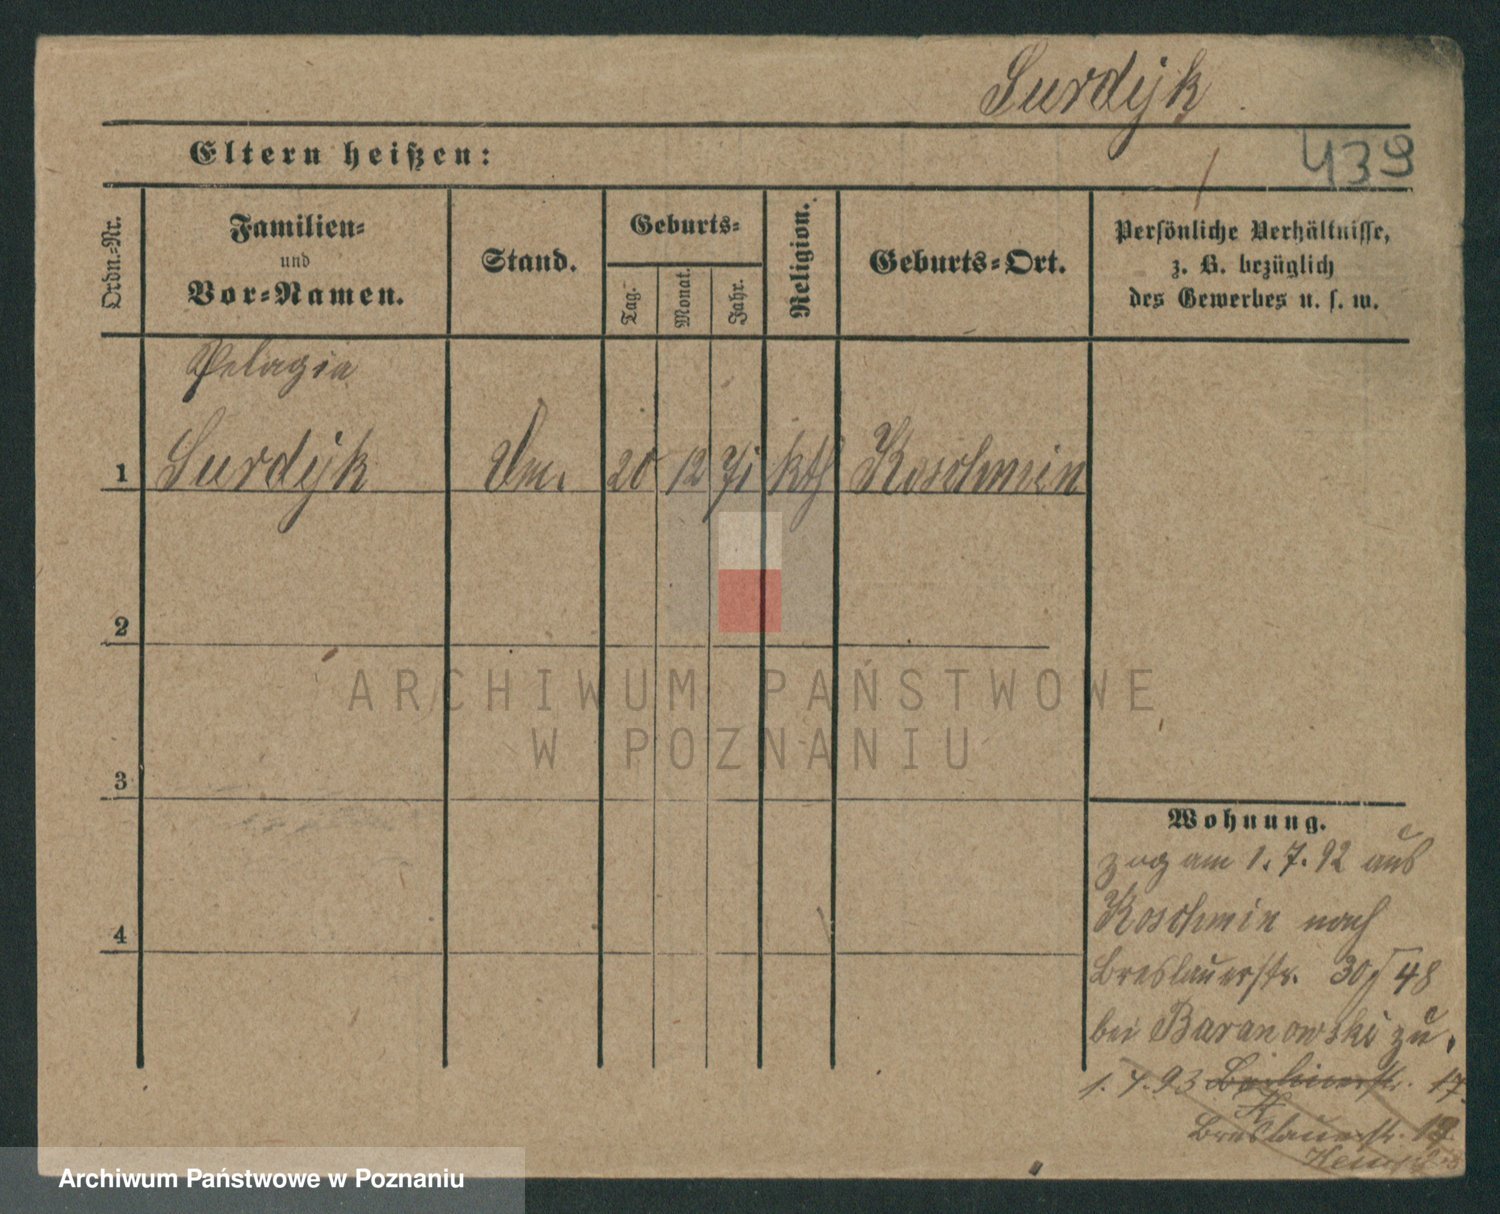 Surdyk
439
Eltern heißen:
Ordn.-Nr.
Familien-
und
Vor-Namen.
Stand.
Geburts-
Tag.
Monat.
Jahr.
Religion.
Geburts-Ort.
Persönliche Verhältnisse,
z. B. bezüglich
des Gewerbes u. s. w.
Pelagia
1 Surdyk 20 12 71 kth Koschmin
2
ARCHIWUM PAŃSTWOWE
W POZNANIU
3
4
Wohnung.
zog am 1.7.92 aus
Koschmin nach
Breslauerstr. 30 48
bei Baranowski zu.
1.7.93 Berlinerstr. 17.
Breslauerstr.
Archiwum Państwowe w Poznaniu